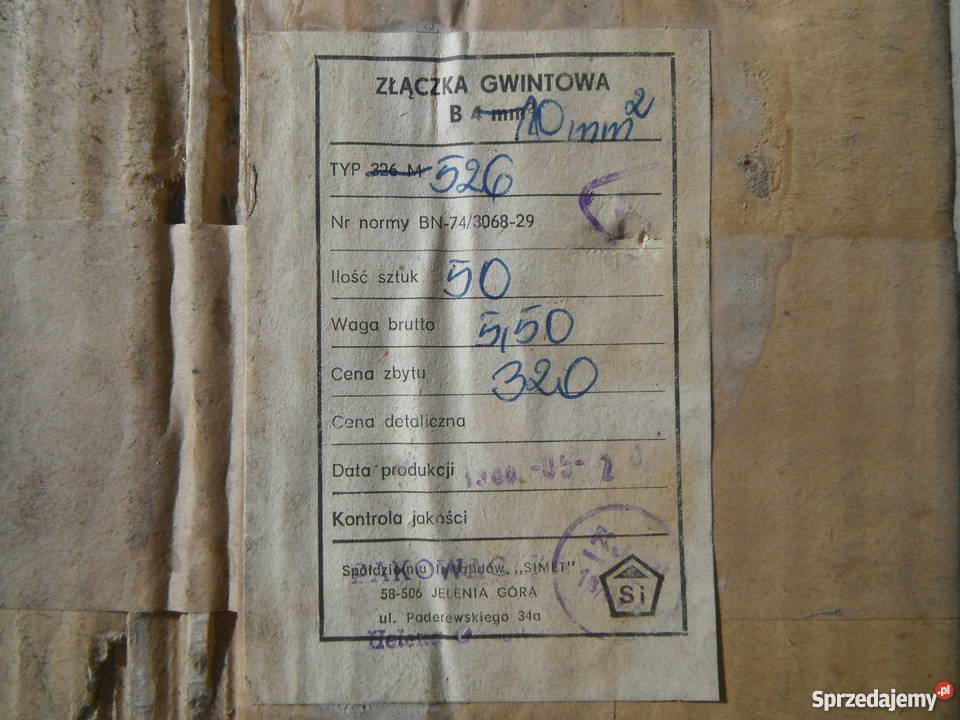 ZŁĄCZKA GWINTOWA
B 4 mm² 10 mm²
TYP 326 M 526
Nr normy BN-74/3068-29
Ilość sztuk 50
Waga brutto 5,50
Cena zbytu 320
Cena detaliczna
Data produkcji
Kontrola jakości
Spółdzielnia Inwalidów „SIMET"
58-506 JELENIA GÓRA
ul. Paderewskiego 34a
Si
Sprzedajemy.pl